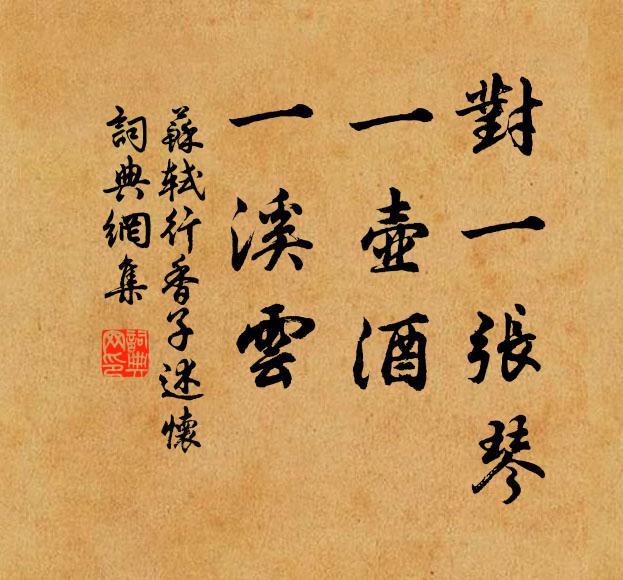 對一張琴
一壺酒
一溪雲
蘇軾行香子述懷
詞典網集
詞典
网印